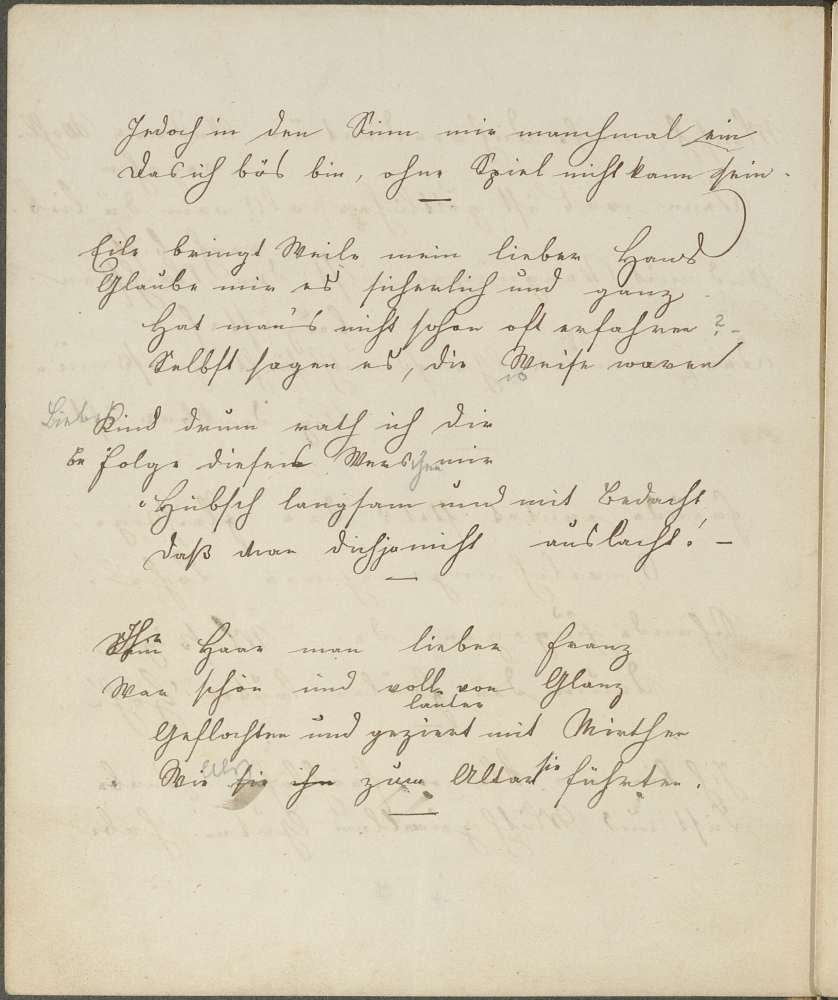 Jedoch in den Sinn mir manchmal ein
Das ich bös bin, ohne Spiel nicht kann sein.
Eile bringt Weile mein lieber Hans
Glaube mir es sicherlich und ganz
Hat man's nicht schon oft erfahren?
Selbst sagen es, die Weise waren
Kind drum rath ich dir
Be folge dieses Verschen mir
"Hübsch langsam und mit Bedacht
Daß man dich ja nicht auslacht! –
Ihr Haar mein lieber Franz
War schön und voll von Glanz
lauter
Geflochten und geziert mit Mirthen
Wie sie ihn zum Altar sie führten.